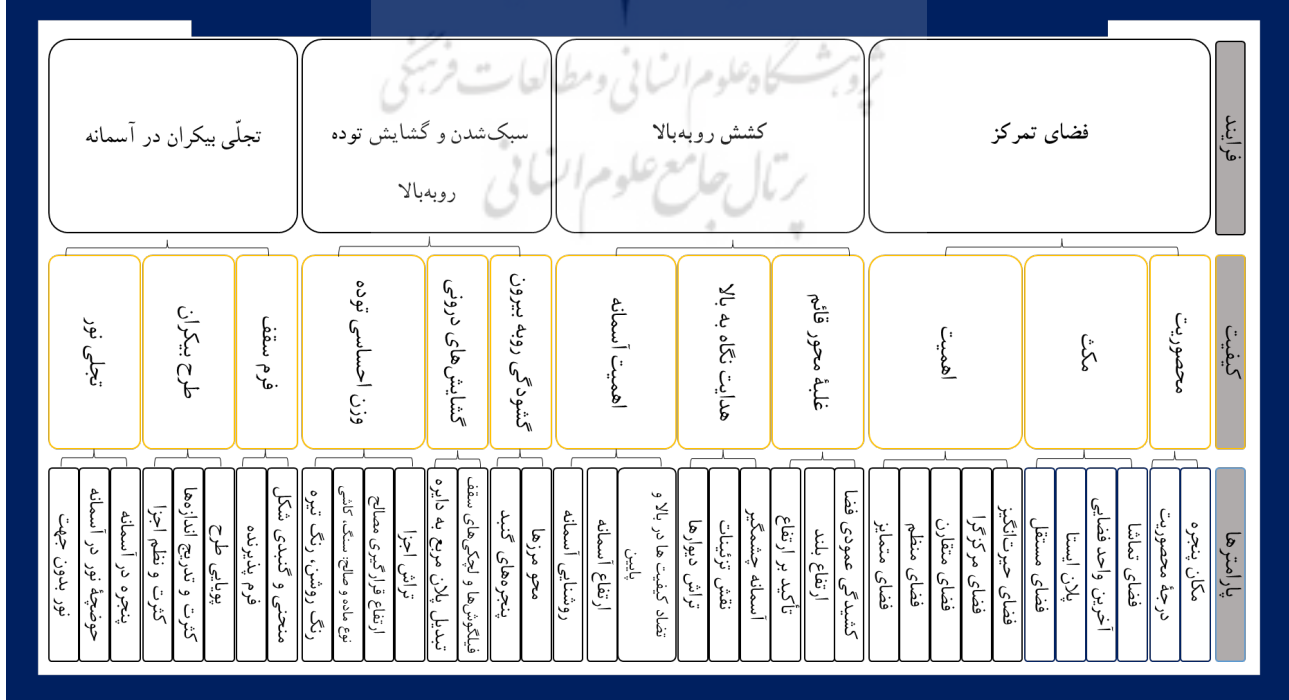 پژوهشگاه علوم انسانی و مطالعات فرهنگی
پرتال جامع علوم انسانی
فرایند
فضای تمرکز
کشش روبه‌بالا
سبک‌شدن و گشایش توده
روبه‌بالا
تجلّی بیکران در آسمانه
کیفیت
محصوریت
مکث
اهمیت
غلبۀ محور قائم
هدایت نگاه به بالا
اهمیت آسمانه
گشودگی روبه بیرون
گشایش‌های درونی
وزن احساسی توده
فرم سقف
طرح بیکران
تجلی نور
پارامترها
مکان پنجره
درجۀ محصوریت
فضای تماشا
آخرین واحد فضایی
پلان ایستا
فضای مستقل
فضای حیرت‌انگیز
فضای مرکزگرا
فضای متقارن
فضای منظم
فضای متمایز
کشیدگی عمودی فضا
ارتفاع بلند
تأکید بر ارتفاع
آسمانه چشمگیر
نقش تزئینات
تراش دیوارها
تضاد کیفیت ها در بالا و
پایین
ارتفاع آسمانه
روشنایی آسمانه
محو مرزها
پنجره‌های گنبد
فیلگوش‌ها و لچکی‌های سقف
تبدیل پلان مربع به دایره
تراش اجزا
ارتفاع قرارگیری مصالح
نوع ماده و صالح: سنگ، کاشی
رنگ روشن، رنگ تیره
منحنی و گنبدی شکل
فرم پذیرنده
پویایی طرح
کثرت و تدریج اندازه‌ها
کثرت و نظم اجزا
پنجره در آسمانه
حوضچۀ نور در آسمانه
نور بدون جهت